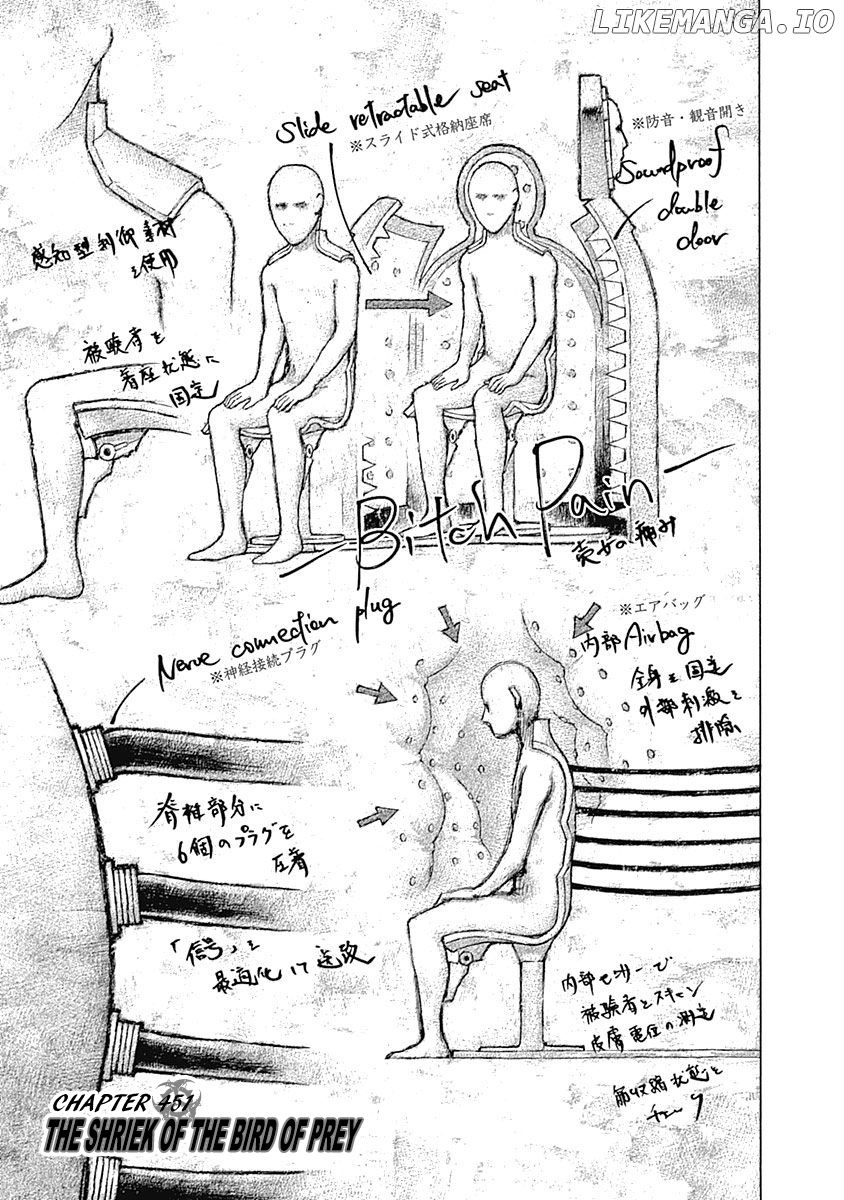 LIKEMANGA.IO
Slide retractable seat
※スライド式格納座席
※防音・観音開き
Soundproof
double
door
を使用
被験者を
着座状態に
固定
Bitch Pain
売女の痛み
Nerve connection plug
※神経接続プラグ
※エアバッグ
内部 Airbag
全身を固定
外部刺激を
排除
脊椎部分に
6個のプラグを
圧着
「信号」を
最適化して送致
内部センサーで
被験者をスキャン
皮膚電位の測定
筋収縮状態を
CHAPTER 451
THE SHRIEK OF THE BIRD OF PREY